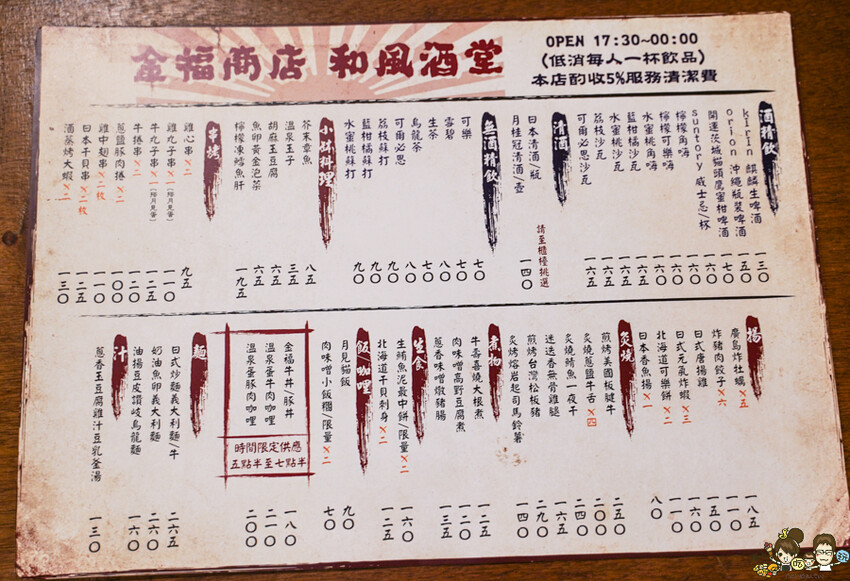 金福商店 和風酒堂
OPEN 17:30~00:00
(低消每人一杯飲品)
本店酌收5%服務清潔費
酒精飲
kirin 麒麟生啤酒 一三〇
orion 沖繩瓶裝啤酒 一五〇
開運茨城貓頭鷹蜜柑啤酒
suntory 威士忌/杯
檸檬角嗨
檸檬可樂嗨
水蜜桃角嗨
藍柑橘沙瓦 一六五
水蜜桃沙瓦 一六五
荔枝沙瓦 一六五
可爾必思沙瓦 一六五
清酒
日本清酒/瓶 請至櫃檯挑選
月桂冠清酒/壺 一四〇
無酒精飲
可樂 七〇
雪碧 七〇
生茶 八〇
烏龍茶 七〇
可爾必思 八〇
荔枝蘇打 九〇
藍柑橘蘇打 九〇
水蜜桃蘇打 九〇
小缽料理
芥末章魚 八五
溫泉玉子 三五
胡麻玉豆腐 六五
魚卵黃金泡菜 六五
檸檬凍鱈魚肝 一九五
串烤
雞心串×二 九五
雞丸子串×一(附月見蛋) 一一〇
牛丸子串×一(附月見蛋) 一二五
牛捲串×二 一二〇
蔥鹽豚肉捲×二 一〇〇
雞中翅串×二 一一〇
日本干貝串×二枚 一二〇
酒蒸烤大蝦×二 一三〇
揚
廣島炸牡蠣×五 一八五
炸豬肉餃子×六 一一〇
日式唐揚雞 一五〇
日式元氣炸蝦×三 一六〇
北海道可樂餅×二 一一〇
日本香魚揚×一 八〇
炙燒
煎烤美國板腱牛 二五〇
炙燒蔥鹽牛舌×四 二〇〇
炙燒鯖魚一夜干 二四〇
迷迭香無骨雞腿 一六五
煎烤台灣松板豬 二九〇
炙烤熔岩起司馬鈴薯 一四〇
煮物
牛壽喜燒大根煮 一二五
肉味噌高野豆腐煮 一二〇
蔥香味噌燉豬腸 一三五
生食
生鮪魚泥最中餅/限量×二 一六〇
北海道干貝刺身×二 一二五
飯/咖哩
月見貓飯 九〇
肉味噌小飯糰/限量×二 七〇
金福牛丼/豚丼 一八〇
溫泉蛋牛肉咖哩 二一〇
溫泉蛋豚肉咖哩 二〇〇
時間限定供應
五點半至七點半
麵
日式炒麵義大利麵/牛 二六五
奶油魚卵義大利麵 二六〇
油揚豆皮讚岐烏龍麵 一六〇
汁
蔥香玉豆腐雞汁豆乳釜湯 一三〇